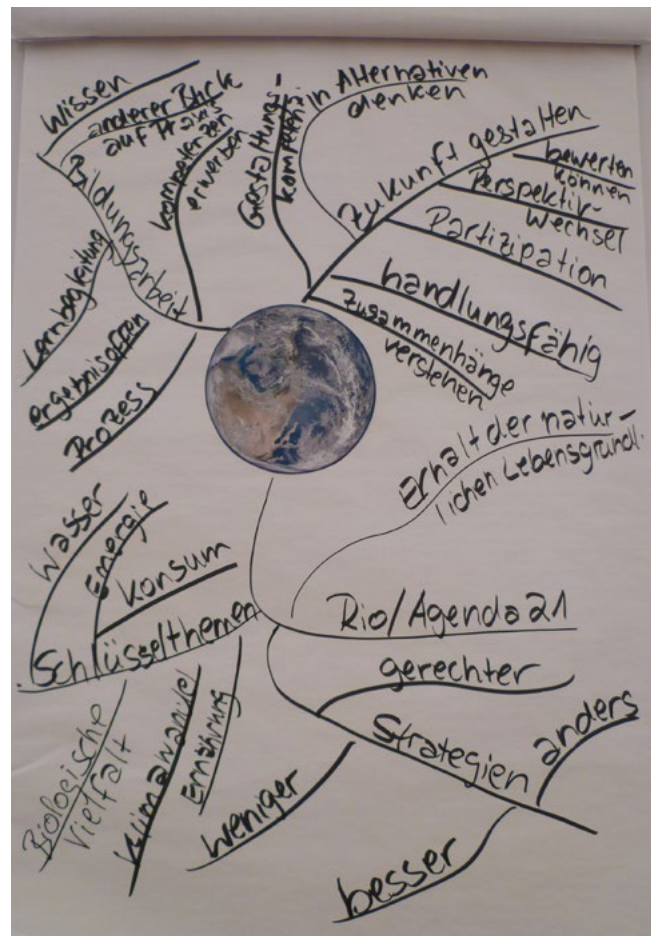 Wissen
anderer Blick
auf Praxis
Bildungsarbeit
Kompetenzen
erwerben
Lernbegleitung
ergebnisoffen
Prozess
Gestaltungs-
kompetenz:
in Alternativen
denken
Zukunft gestalten
bewerten
können
Perspektiv-
Wechsel
Partizipation
handlungsfähig
Zusammenhänge
verstehen
Erhalt der natür-
lichen Lebensgrundl.
Rio/Agenda 21
Wasser
Energie
Konsum
Schlüsselthemen
Biologische
Vielfalt
Klimawandel
Ernährung
gerechter
Strategien
anders
weniger
besser